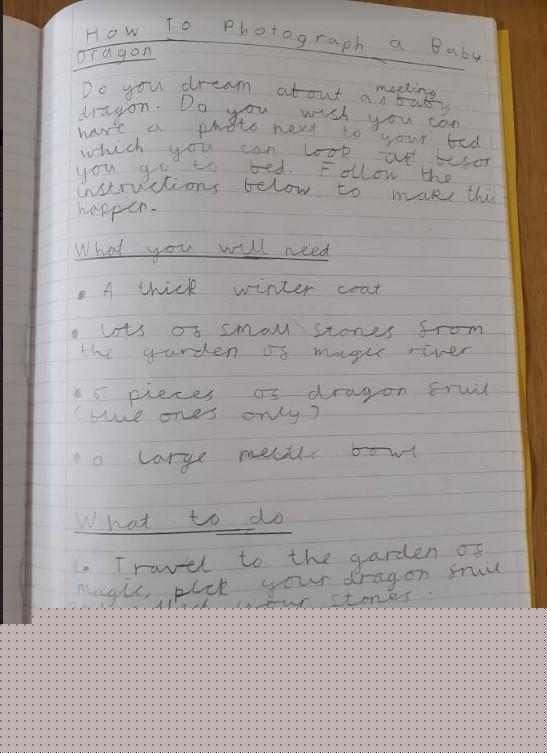 How To Photograph a Baby
Dragon
Do you dream about a meeting baby
dragon. Do you wish you can
have a photo next to your bed
which you can look at befor
you go to bed. Follow the
instructions below to make this
happen.
What you will need
• A thick winter coat
• lots of small stones from
the garden of magic river
• 5 pieces of dragon fruit
(blue ones only)
• a large metile bowl
What to do
1. Travel to the garden of
magic, pick your dragon fruit
your stones.